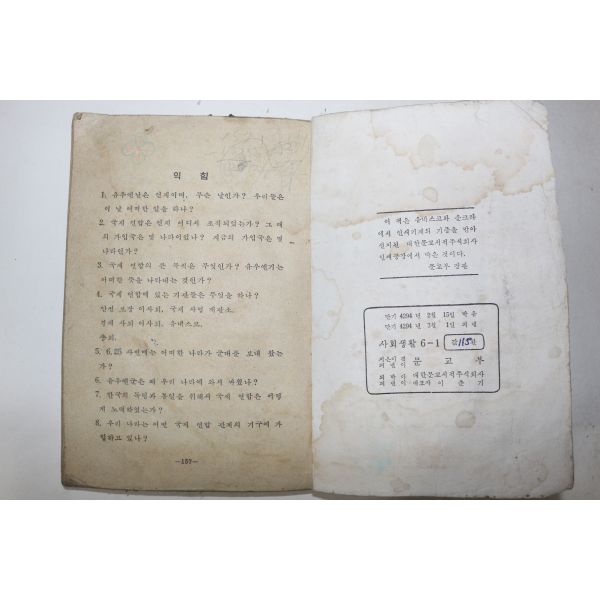 익 힘
1. 유우엔날은 언제이며, 무슨 날인가? 우리들은
이 날 어떠한 일을 하나?
2. 국제 연합은 언제 어디서 조직되었는가? 그 때
의 가입국은 몇 나라이었나? 지금의 가입국은 몇
나라인가?
3. 국제 연합의 큰 목적은 무엇인가? 유우엔기는
어떠한 뜻을 나타내는 것인가?
4. 국제 연합에 있는 기관들은 무엇을 하나?
안전 보장 이사회, 국제 사법 재판소,
경제 사회 이사회, 유네스코,
총회,
5. 6.25 사변에는 어떠한 나라가 군대를 보내 왔는
가?
6. 유우엔군은 왜 우리 나라에 와서 싸웠나?
7. 한국의 독립과 통일을 위해서 국제 연합은 어떻
게 노력하였는가?
8. 우리 나라는 어떤 국제 연합 관계의 기구에 가
입하고 있나?
—157—
이 책은 유네스코와 운크라
에서 인쇄기계의 기증을 받아
설치된 대한문교서적주식회사
인쇄공장에서 박은 것이다.
문교부 장관
단기 4294 년 2월 15일 박음
단기 4294 년 3월 1일 펴냄
사회생활 6-1 값 115환
지은이 겸
펴낸이 문교부
박은이 대한문교서적주식회사
대표자 이 준 기